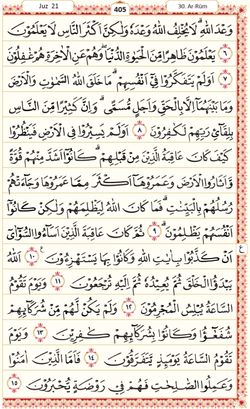 Juz 21 405 30. Ar-Rûm
وَعْدَ اللّٰهِ ۗ لَا يُخْلِفُ اللّٰهُ وَعْدَهٗ وَلٰكِنَّ اَكْثَرَ النَّاسِ لَا يَعْلَمُوْنَ
٦ يَعْلَمُوْنَ ظَاهِرًا مِّنَ الْحَيٰوةِ الدُّنْيَا ۖ وَهُمْ عَنِ الْاٰخِرَةِ هُمْ غٰفِلُوْنَ
٧ اَوَلَمْ يَتَفَكَّرُوْا فِيْٓ اَنْفُسِهِمْ ۗ مَا خَلَقَ اللّٰهُ السَّمٰوٰتِ وَالْاَرْضَ
وَمَا بَيْنَهُمَآ اِلَّا بِالْحَقِّ وَاَجَلٍ مُّسَمًّى ۗ وَاِنَّ كَثِيْرًا مِّنَ النَّاسِ
بِلِقَاۤئِ رَبِّهِمْ لَكٰفِرُوْنَ ٨ اَوَلَمْ يَسِيْرُوْا فِى الْاَرْضِ فَيَنْظُرُوْا
كَيْفَ كَانَ عَاقِبَةُ الَّذِيْنَ مِنْ قَبْلِهِمْ ۗ كَانُوْٓا اَشَدَّ مِنْهُمْ قُوَّةً
وَّاَثَارُوا الْاَرْضَ وَعَمَرُوْهَآ اَكْثَرَ مِمَّا عَمَرُوْهَا وَجَاۤءَتْهُمْ
رُسُلُهُمْ بِالْبَيِّنٰتِ ۗ فَمَا كَانَ اللّٰهُ لِيَظْلِمَهُمْ وَلٰكِنْ كَانُوْٓا
اَنْفُسَهُمْ يَظْلِمُوْنَ ٩ ثُمَّ كَانَ عَاقِبَةَ الَّذِيْنَ اَسَاۤءُوا السُّوْۤآٰى
اَنْ كَذَّبُوْا بِاٰيٰتِ اللّٰهِ وَكَانُوْا بِهَا يَسْتَهْزِءُوْنَ ١٠ اَللّٰهُ
يَبْدَؤُا الْخَلْقَ ثُمَّ يُعِيْدُهٗ ثُمَّ اِلَيْهِ تُرْجَعُوْنَ ١١ وَيَوْمَ تَقُوْمُ
السَّاعَةُ يُبْلِسُ الْمُجْرِمُوْنَ ١٢ وَلَمْ يَكُنْ لَّهُمْ مِّنْ شُرَكَاۤئِهِمْ
شُفَعٰۤؤُا وَكَانُوْا بِشُرَكَاۤئِهِمْ كٰفِرِيْنَ ١٣ وَيَوْمَ
تَقُوْمُ السَّاعَةُ يَوْمَئِذٍ يَّتَفَرَّقُوْنَ ١٤ فَاَمَّا الَّذِيْنَ اٰمَنُوْا
وَعَمِلُوا الصّٰلِحٰتِ فَهُمْ فِيْ رَوْضَةٍ يُّحْبَرُوْنَ ١٥